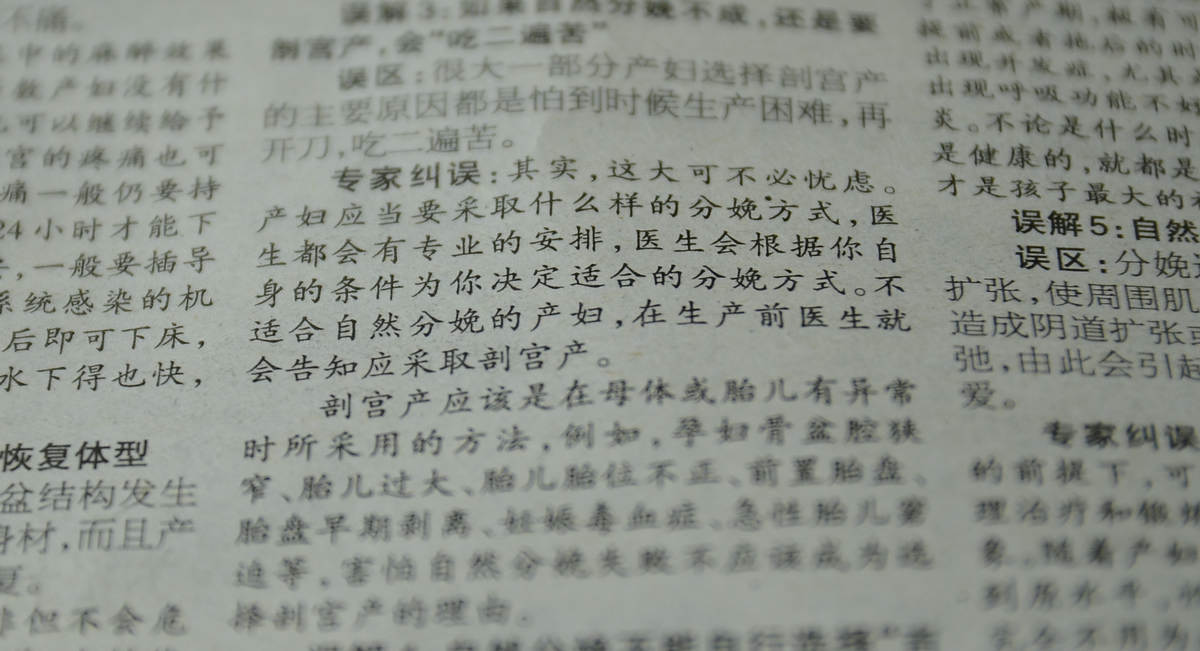 不痛。
中的麻醉效果
数产妇没有什
可以继续给予
宫的疼痛也可
痛一般仍要持
24小时才能下
，一般要插导
系统感染的机
后即可下床，
水下得也快，
恢复体型
盆结构发生
身材，而且产
复。
非但不会危
误解3：如果自然分娩不成，还是要
剖宫产，会“吃二遍苦”
误区：很大一部分产妇选择剖宫产
的主要原因都是怕到时候生产困难，再
开刀，吃二遍苦。
专家纠误：其实，这大可不必忧虑。
产妇应当要采取什么样的分娩方式，医
生都会有专业的安排，医生会根据你自
身的条件为你决定适合的分娩方式。不
适合自然分娩的产妇，在生产前医生就
会告知应采取剖宫产。
剖宫产应该是在母体或胎儿有异常
时所采用的方法，例如，孕妇骨盆腔狭
窄、胎儿过大、胎儿胎位不正、前置胎盘、
胎盘早期剥离、妊娠毒血症、急性胎儿窘
迫等，害怕自然分娩失败不应该成为选
择剖宫产的理由。
了正常产期，极有可
提前或者拖后的时
出现并发症，尤其
出现呼吸功能不好
炎。不论是什么时
是健康的，就都是
才是孩子最大的
误解5：自然
误区：分娩
扩张，使周围肌
造成阴道扩张
弛，由此会引起
爱。
专家纠误
的前提下，可
理治疗和锻炼
象。随着产妇
到原水平，